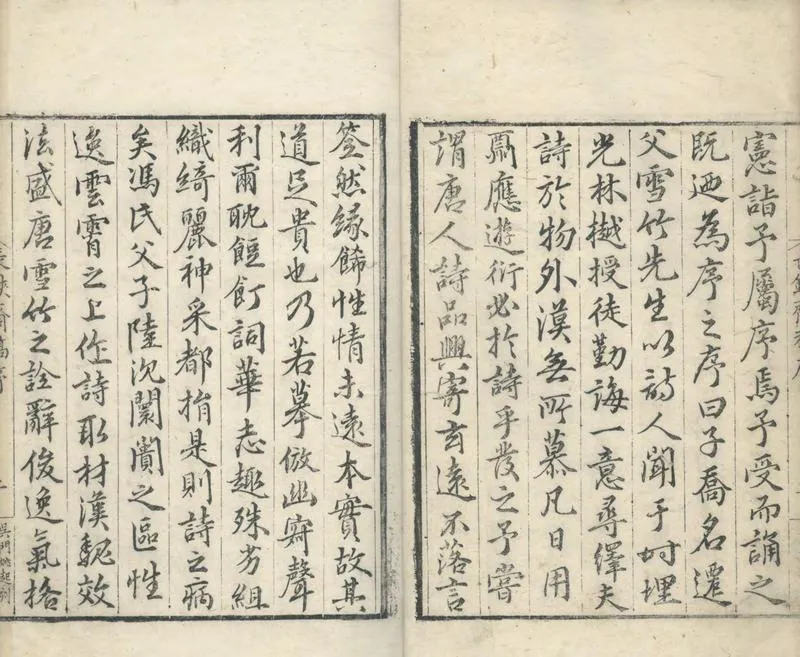 憲詣予屬序焉予受而誦之
既迺為序之序曰子喬名遷
父雪竹先生以詩人聞于時埋
光林樾授徒勤誨一意尋繹夫
詩於物外漠無所慕凡日用
應遊衍必於詩乎發之予嘗
謂唐人詩品興寄玄遠不落言
筌然緣餙性情未遠本實故其
道足貴也乃若摹倣幽齋聲
利爾耽餖飣詞華志趣殊芳組
織綺麗神采都捐是則詩之病
矣馮氏父子陸沉闤闠之區性
逸雲霄之上作詩取材漢魏效
法盛唐雪竹之詮辭俊逸氣格
齋稿序
吳門姚起刻